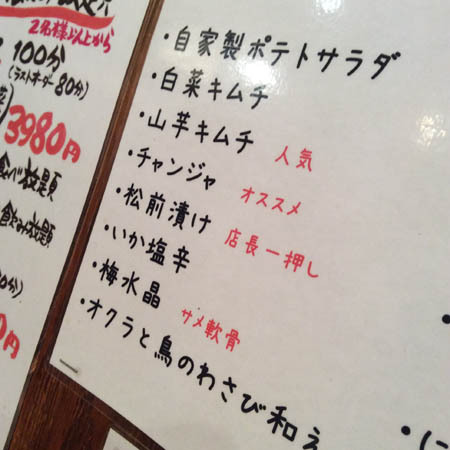 2名様以上から
100分
(ラストオーダー80分)
3980円
食べ放題
飲み放題
・自家製ポテトサラダ
・白菜キムチ
・山芋キムチ 人気
・チャンジャ オススメ
・松前漬け 店長一押し
・いか塩辛
・梅水晶 サメ軟骨
・オクラと鳥のわさび和え